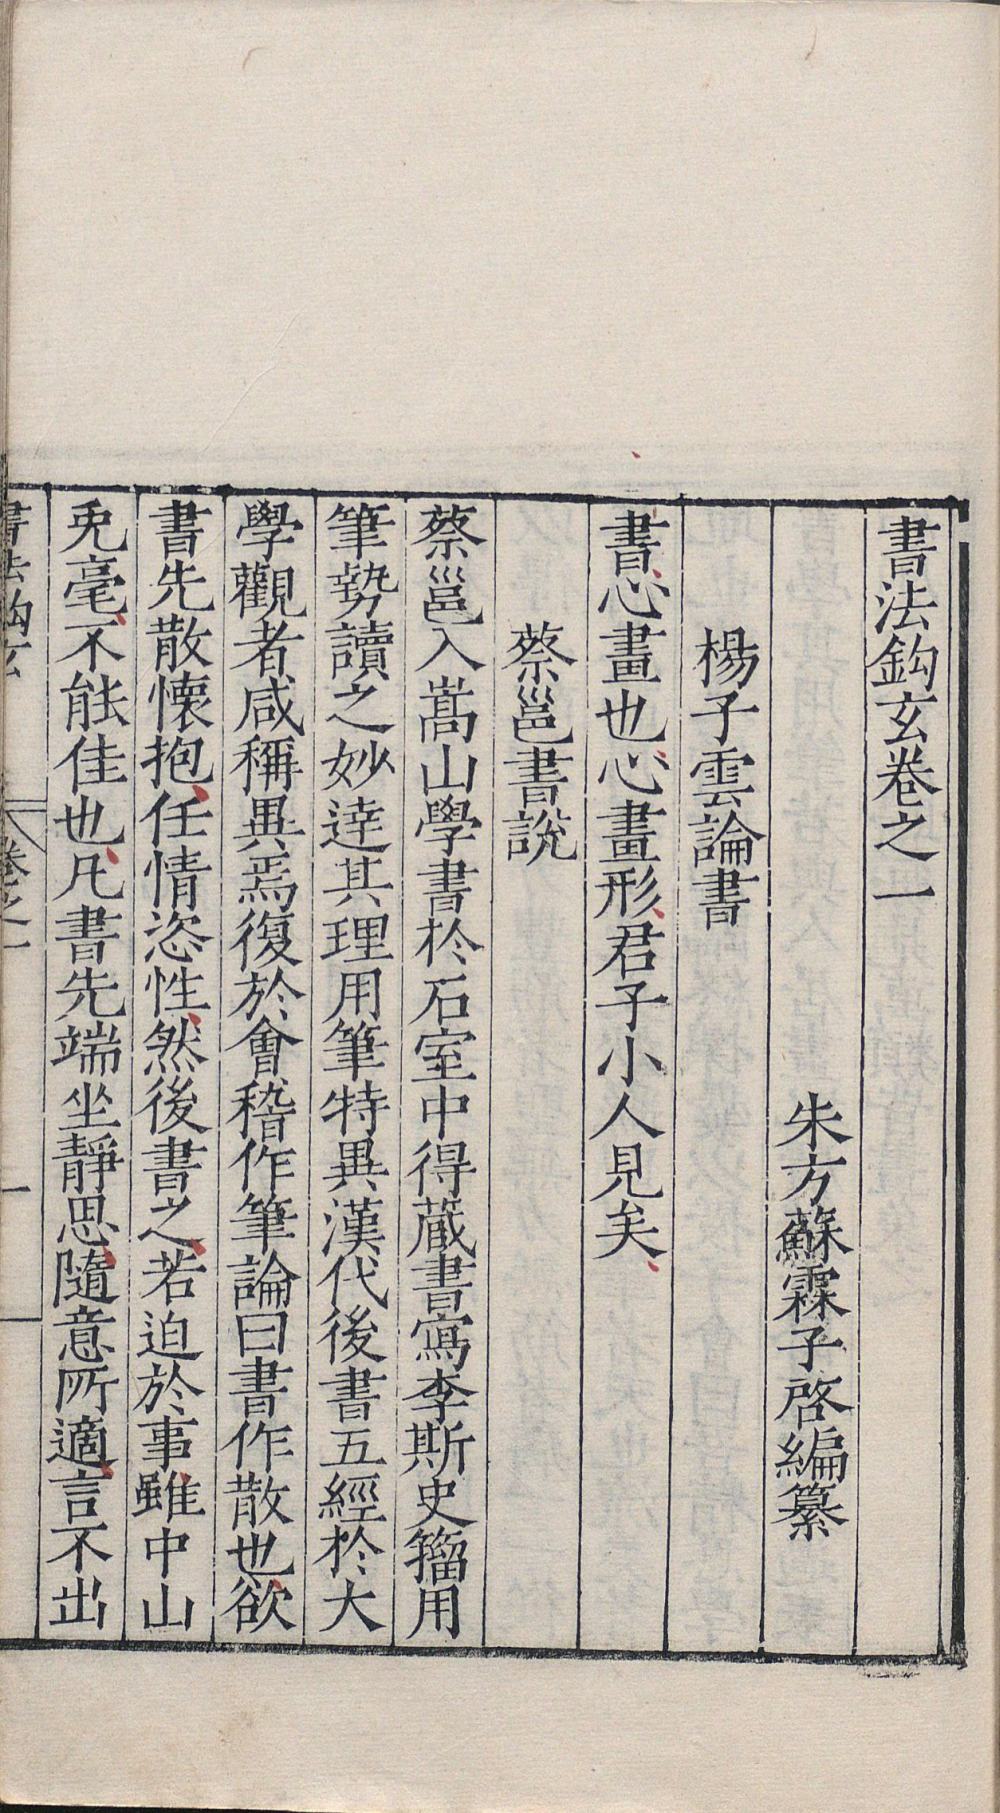 書法鈎玄卷之一
朱方蘇霖子啓編纂
楊子雲論書
書心畫也心畫形君子小人見矣
蔡邕書說
蔡邕入嵩山學書於石室中得蔵書寫李斯史籀用
筆勢讀之妙達其理用筆特異漢代後書五經於大
學觀者咸稱異焉復於會稽作筆論曰書作散也欲
書先散懐抱任情恣性然後書之若迫於事雖中山
兎毫不能佳也凡書先端坐靜思隨意所適言不出
書法鈎玄 卷之一 一